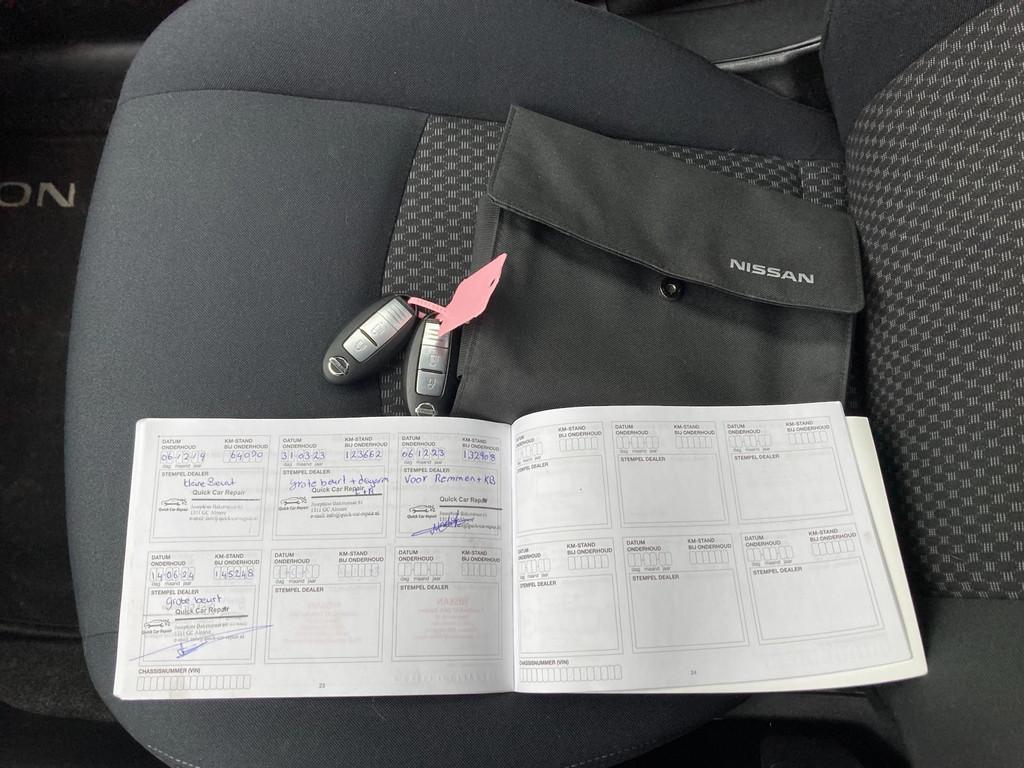 ON
NISSAN
DATUM ONDERHOUD
KM-STAND BIJ ONDERHOUD
06 12 19
64090
dag maand jaar
STEMPEL DEALER
kleine Beurt
Quick Car Repair
1311 GC Almere
DATUM ONDERHOUD
KM-STAND BIJ ONDERHOUD
31 03 23
123662
dag maand jaar
STEMPEL DEALER
grote beurt +
Quick Car Repair
1311 GC Almere
DATUM ONDERHOUD
KM-STAND BIJ ONDERHOUD
06 12 23
132908
dag maand jaar
STEMPEL DEALER
Voor Remmen + KB
Quick Car Repair
DATUM ONDERHOUD
KM-STAND BIJ ONDERHOUD
14 06 24
145248
dag maand jaar
STEMPEL DEALER
grote beurt
Quick Car Repair
1311 GC Almere
DATUM ONDERHOUD
KM-STAND BIJ ONDERHOUD
dag maand jaar
STEMPEL DEALER
DATUM ONDERHOUD
KM-STAND BIJ ONDERHOUD
dag maand jaar
STEMPEL DEALER
CHASSISNUMMER (VIN)
23
DATUM ONDERHOUD
KM-STAND BIJ ONDERHOUD
dag maand jaar
STEMPEL DEALER
DATUM ONDERHOUD
KM-STAND BIJ ONDERHOUD
dag maand jaar
STEMPEL DEALER
DATUM ONDERHOUD
KM-STAND BIJ ONDERHOUD
dag maand jaar
STEMPEL DEALER
DATUM ONDERHOUD
KM-STAND BIJ ONDERHOUD
dag maand jaar
STEMPEL DEALER
DATUM ONDERHOUD
KM-STAND BIJ ONDERHOUD
dag maand jaar
STEMPEL DEALER
DATUM ONDERHOUD
KM-STAND BIJ ONDERHOUD
dag maand jaar
STEMPEL DEALER
CHASSISNUMMER (VIN)
24